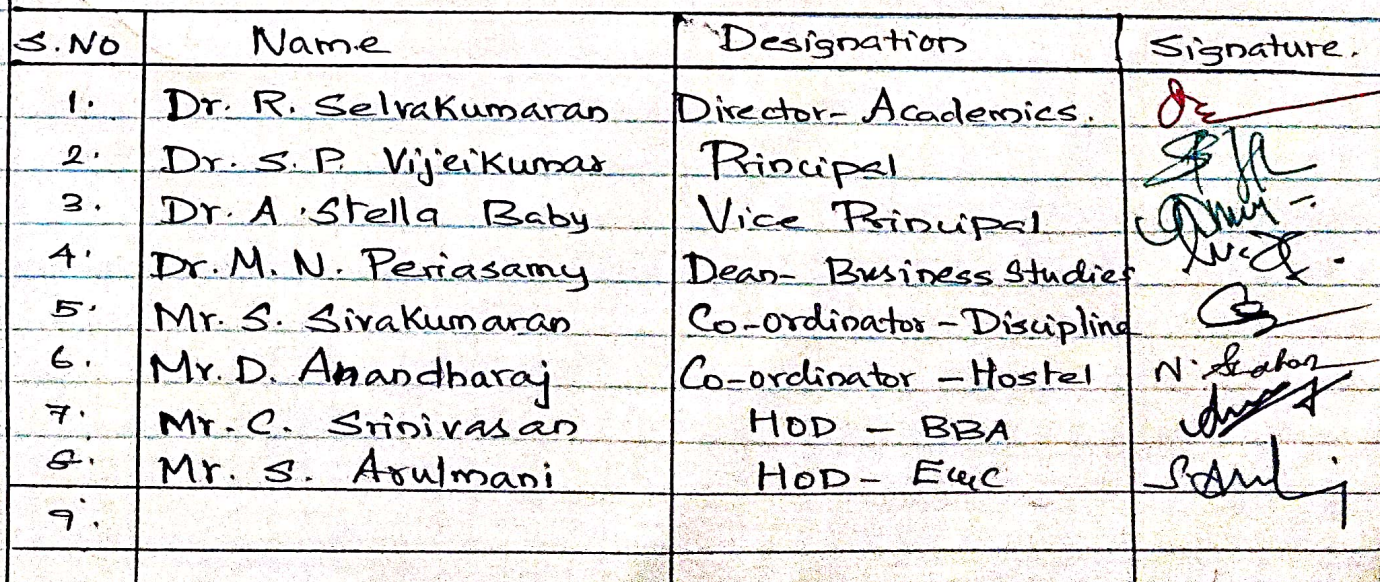 S.No Name Designation Signature.
1. Dr. R. Selvakumaran Director- Academics.
2. Dr. S. P. Vijeikumar Principal
3. Dr. A. Stella Baby Vice Principal
4. Dr. M. N. Periasamy Dean- Business Studies
5. Mr. S. Sivakumaran Co-ordinator - Discipline
6. Mr. D. Anandharaj Co-ordinator - Hostel
7. Mr. C. Srinivasan HOD - BBA
8. Mr. S. Arulmani HOD -
9.